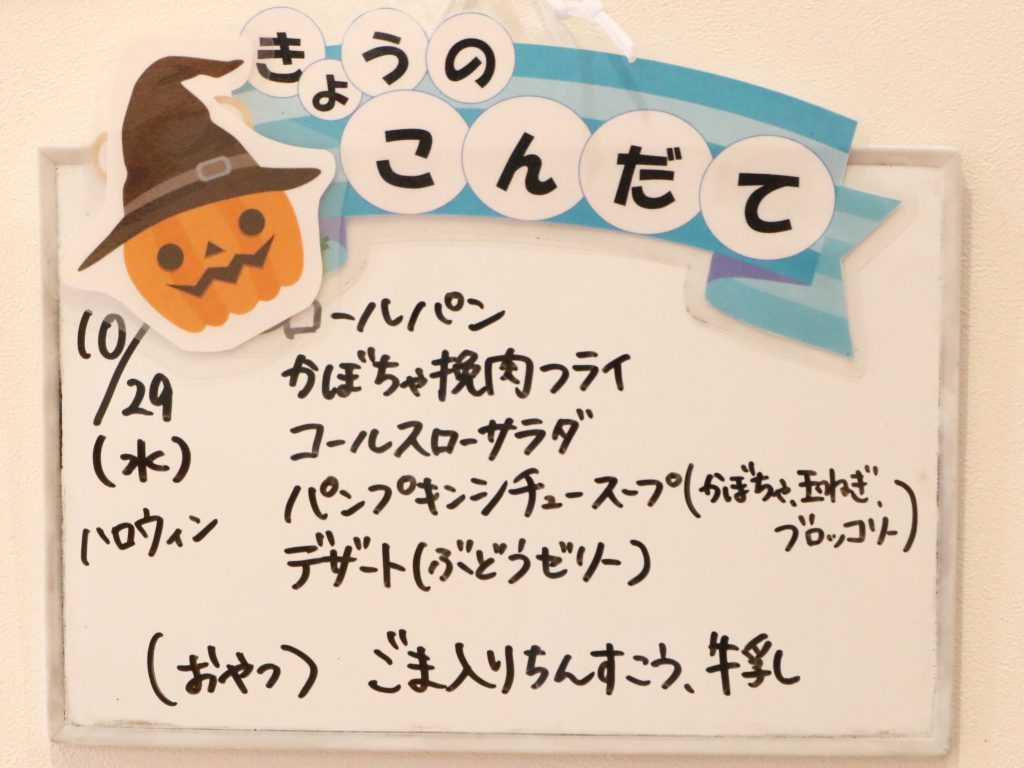 きょうの
こんだて
10/29
(水)
ハロウィン
ロールパン
かぼちゃ挽肉フライ
コールスローサラダ
パンプキンシチュースープ(かぼちゃ、玉ねぎ、
ブロッコリー)
デザート(ぶどうゼリー)
(おやつ) ごま入りちんすこう、牛乳